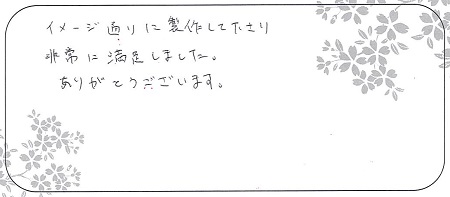 イメージ通りに製作して下さり
非常に満足しました。
ありがとうございます。